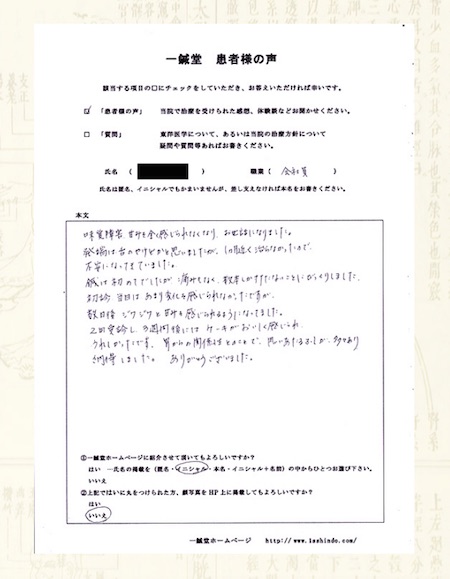 一鍼堂 患者様の声
該当する項目の□にチェックをしていただき、お答えいただければ幸いです。
☑ 「患者様の声」 当院で治療を受けられた感想、体験談などお聞かせください。
□ 「質問」 東洋医学について、あるいは当院の治療方針について
疑問や質問等あればお書きください。
氏名 ( ) 職業 ( 会社員 )
氏名は匿名、イニシャルでもかまいませんが、差し支えなければ本名をお書きください。
本文
味覚障害 甘みを全く感じられなくなり、お世話になりました。
発端は舌のやけどかと思いましたが、1ヶ月近く治らなかったので、
不安になってきていました。
鍼は初めてでしたが 痛みもなく、数本しかけたないことにびっくりしました。
初診 当日は あまり変化を感じられなかったですが、
数日後 ジワジワと甘みを感じられるようになってました。
2回受診し、3週間後には ケーキがおいしく感じられ、
うれしかったです。 胃からの関係もとのことで、思いあたるふしが、多々あり
納得しました。 ありがとうございました。
①一鍼堂ホームページに紹介させて頂いてもよろしいですか?
はい −氏名の掲載を(匿名・イニシャル・本名・イニシャル+名前)の中からひとつお選び下さい。
いいえ
②上記ではいに丸をつけられた方、顔写真をHP上に掲載してもよろしいですか?
はい
いいえ
一鍼堂ホームページ http://www.isshindo.com/